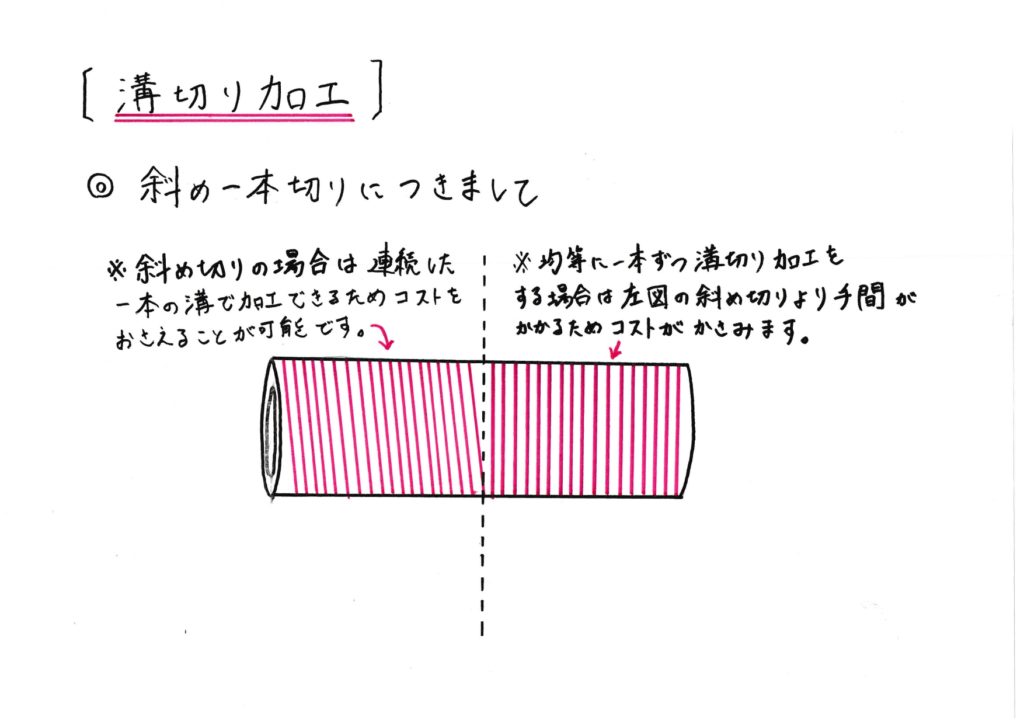 [溝切り加工]
◎ 斜め一本切りにつきまして
※斜め切りの場合は連続した
一本の溝で加工できるためコストを
おさえることが可能です。
※均等に一本ずつ溝切り加工を
する場合は左図の斜め切りより手間が
かかるためコストがかさみます。